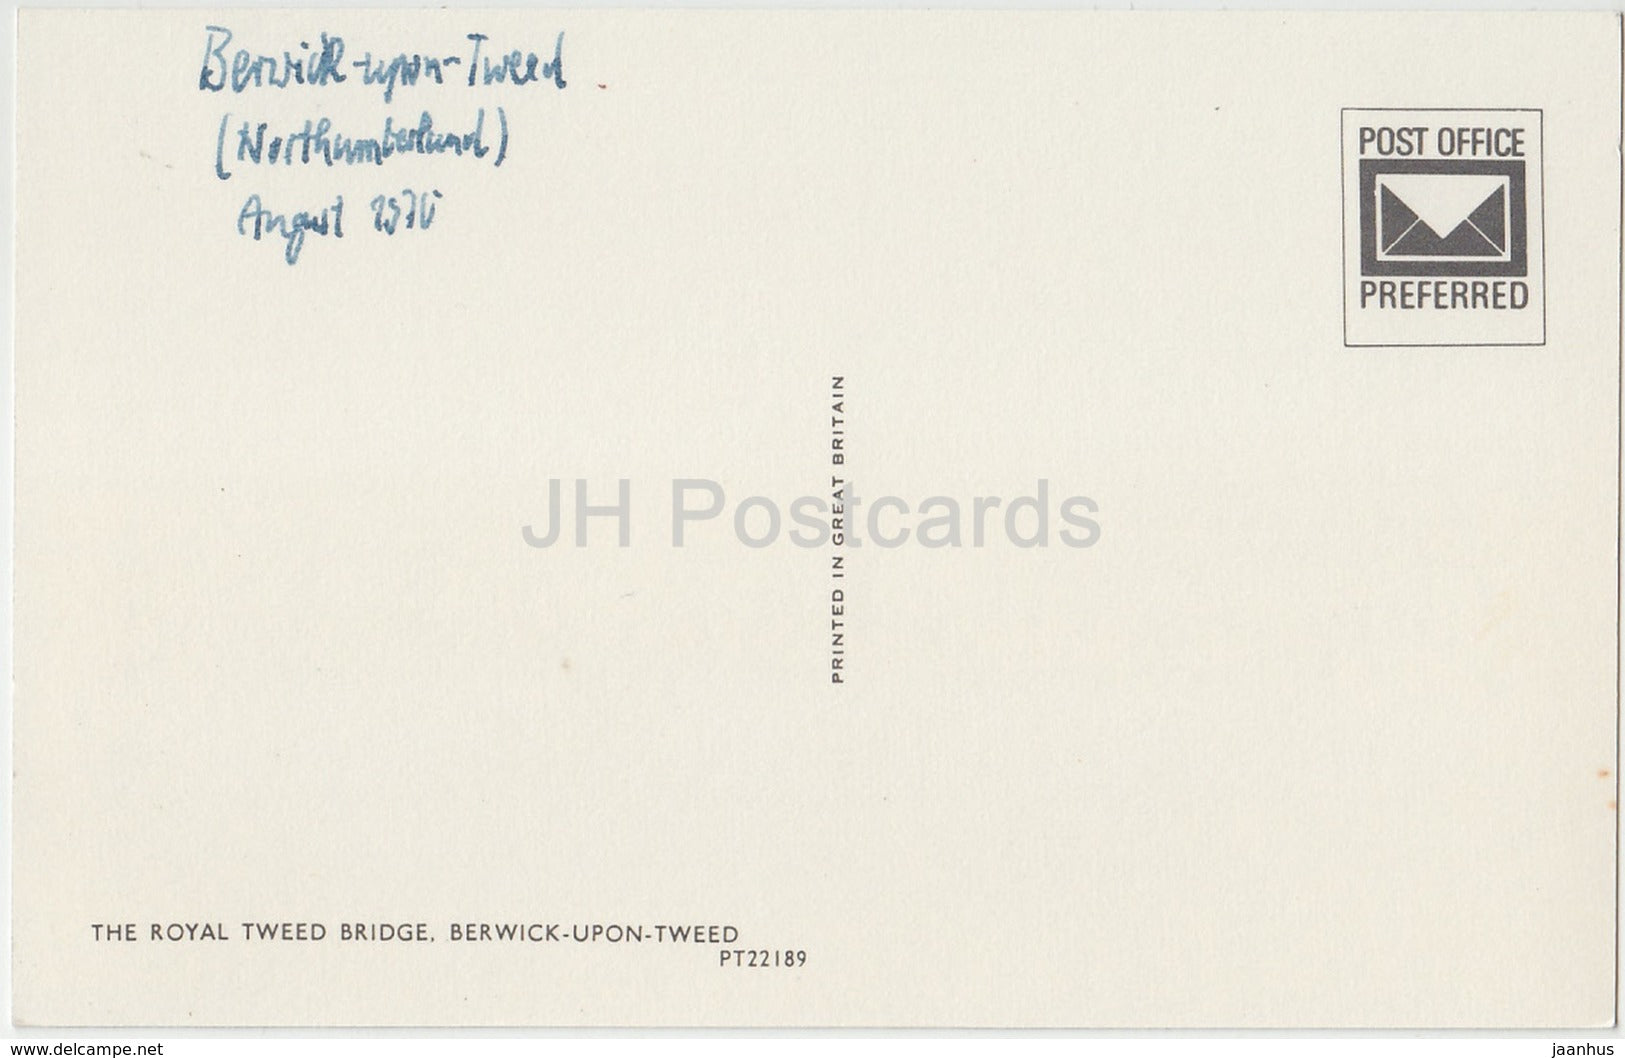 Berwick-upon-Tweed
(Northumberland)
August 1970
POST OFFICE
PREFERRED
PRINTED IN GREAT BRITAIN
JH Postcards
THE ROYAL TWEED BRIDGE, BERWICK-UPON-TWEED
PT22189
www.delcampe.net
jaanhus